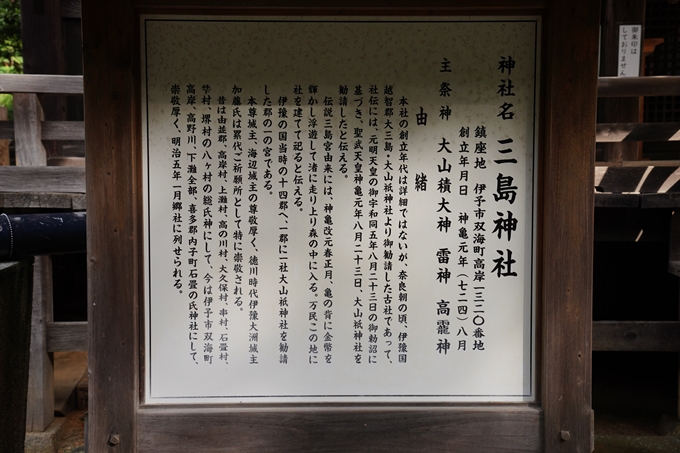 神社名 三島神社
鎮座地 伊予市双海町高岸一三二〇番地
創立年月日 神亀元年(七二四)八月
主祭神 大山積大神 雷神 高龗神
由緒
本社の創立年代は詳細ではないが、奈良朝の頃、伊豫国
越智郡大三島・大山祇神社より御勧請した古社であって、
社伝には、元明天皇の御宇和同五年八月二十三日の御勅詔に
基づき、聖武天皇神亀元年八月二十三日、大山祇神社を
勧請したと伝える。
伝説三島宮由来には、神亀改元春正月、亀の背に金幣を
輝かし浮遊して渚に走り上り森の中に入る。万民この地に
社を建てて祀ると伝える。
伊豫の国当時の十四郡へ、一郡に一社大山祇神社を勧請
した郡の一の宮である。
本尊城主、海辺城主の尊敬厚く、徳川時代伊豫大洲城主
加藤氏は累代ご祈願所として特に崇敬される。
昔は由並郡、高岸村、上灘村、高の川村、大久保村、串村、石畳村、
峯村、堺村の八ヶ村の総氏神にして、今は伊予市双海町
高岸、高野川、下灘全部、喜多郡内子町石畳の氏神社にして、
崇敬厚く、明治五年一月郷社に列せられる。
御朱印は
しておりません